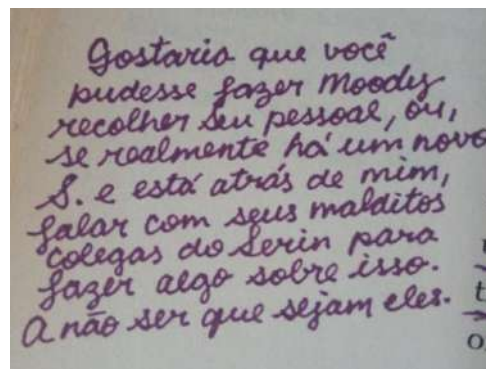 Gostaria que você
pudesse fazer Moody
recolher seu pessoal, ou,
se realmente há um novo
S. e está atrás de mim,
falar com seus malditos
colegas do Serin para
fazer algo sobre isso.
A não ser que sejam eles.